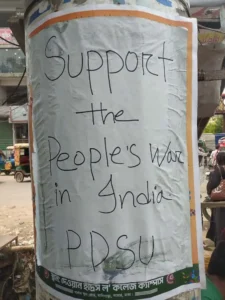 Support
the
People's War
in India
PDSU
ল' কলেজ ক্যাম্পাস